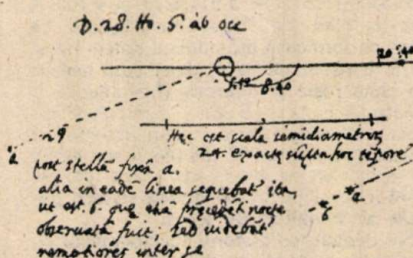 D. 28. Ho. 5. ab occ
20.40
5.12 8.40
29
a
Hec est scala semidiametros
24. exacte hoc tempore
post stellã fixã a.
alia in eadẽ linea sequebat ita,
ut est. b. que etiã precedẽti nocte
observata fuit, sed videbãt
remotiores inter se
a
b